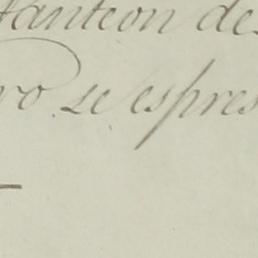 Panteon de
ro se espres